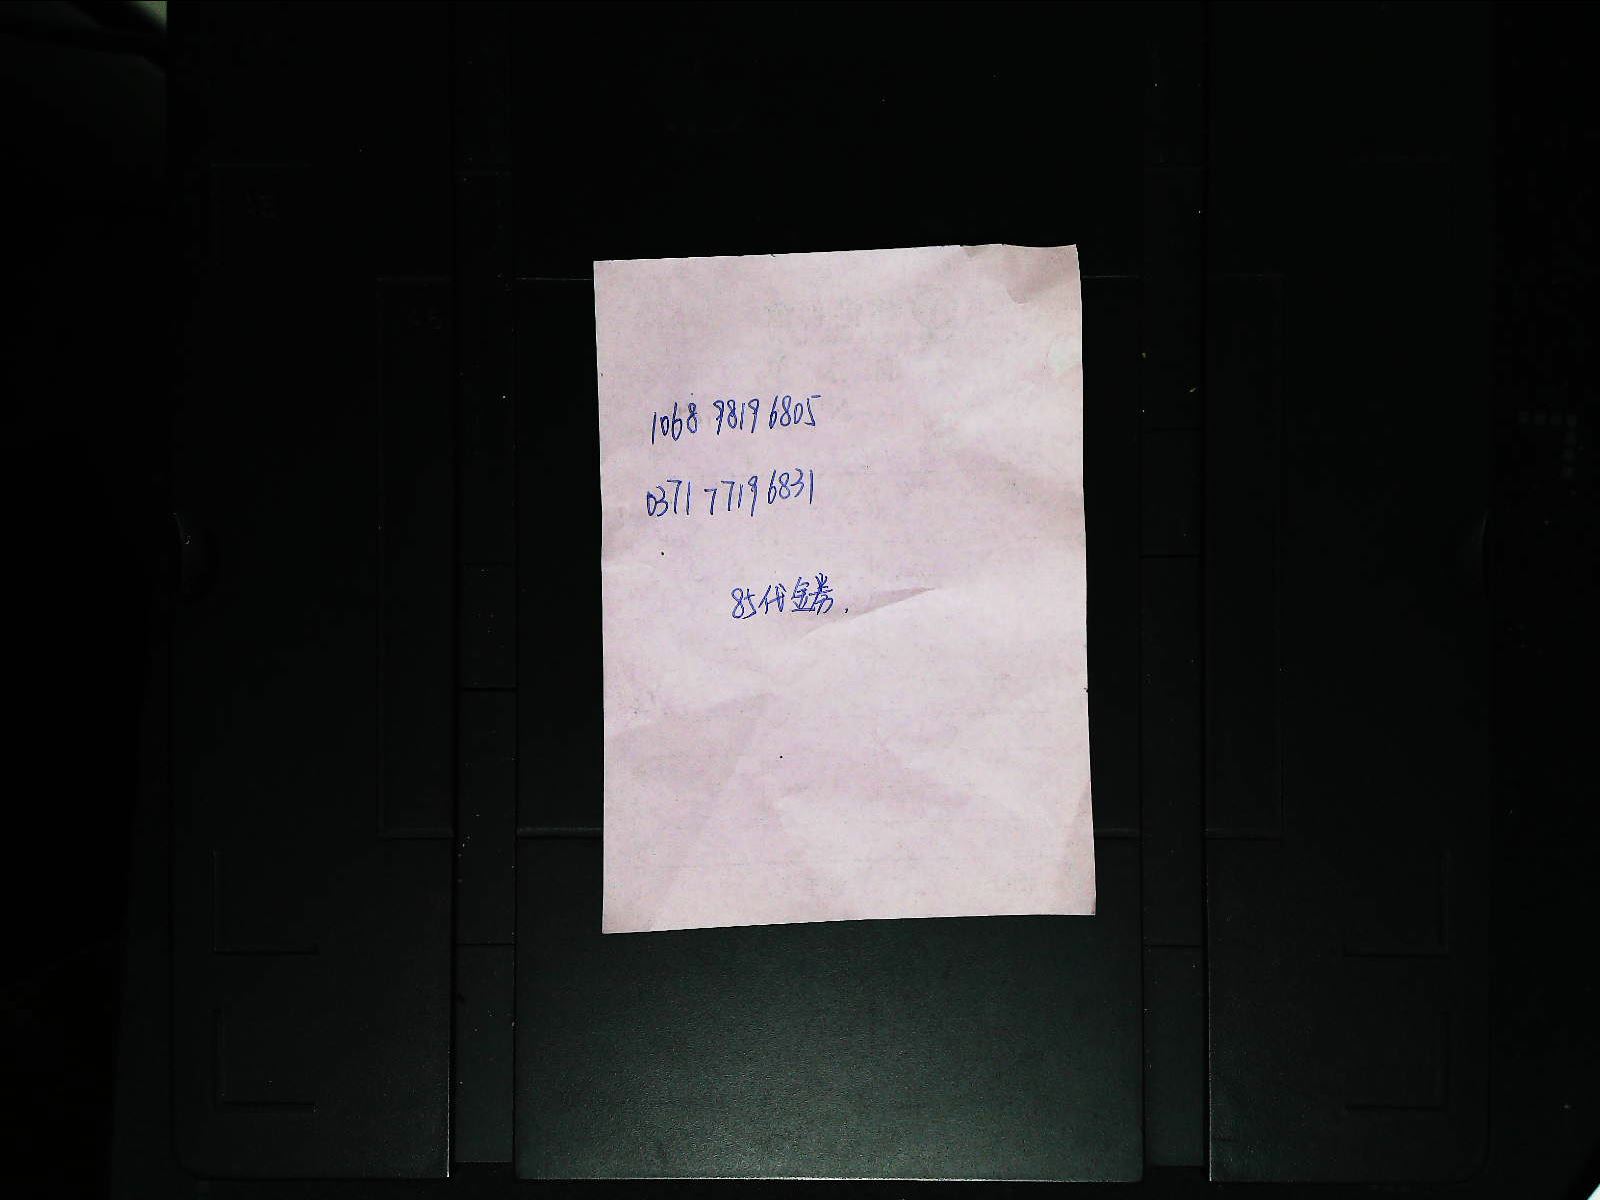 1068 9819 6805
0371 7719 6831
85代金券.